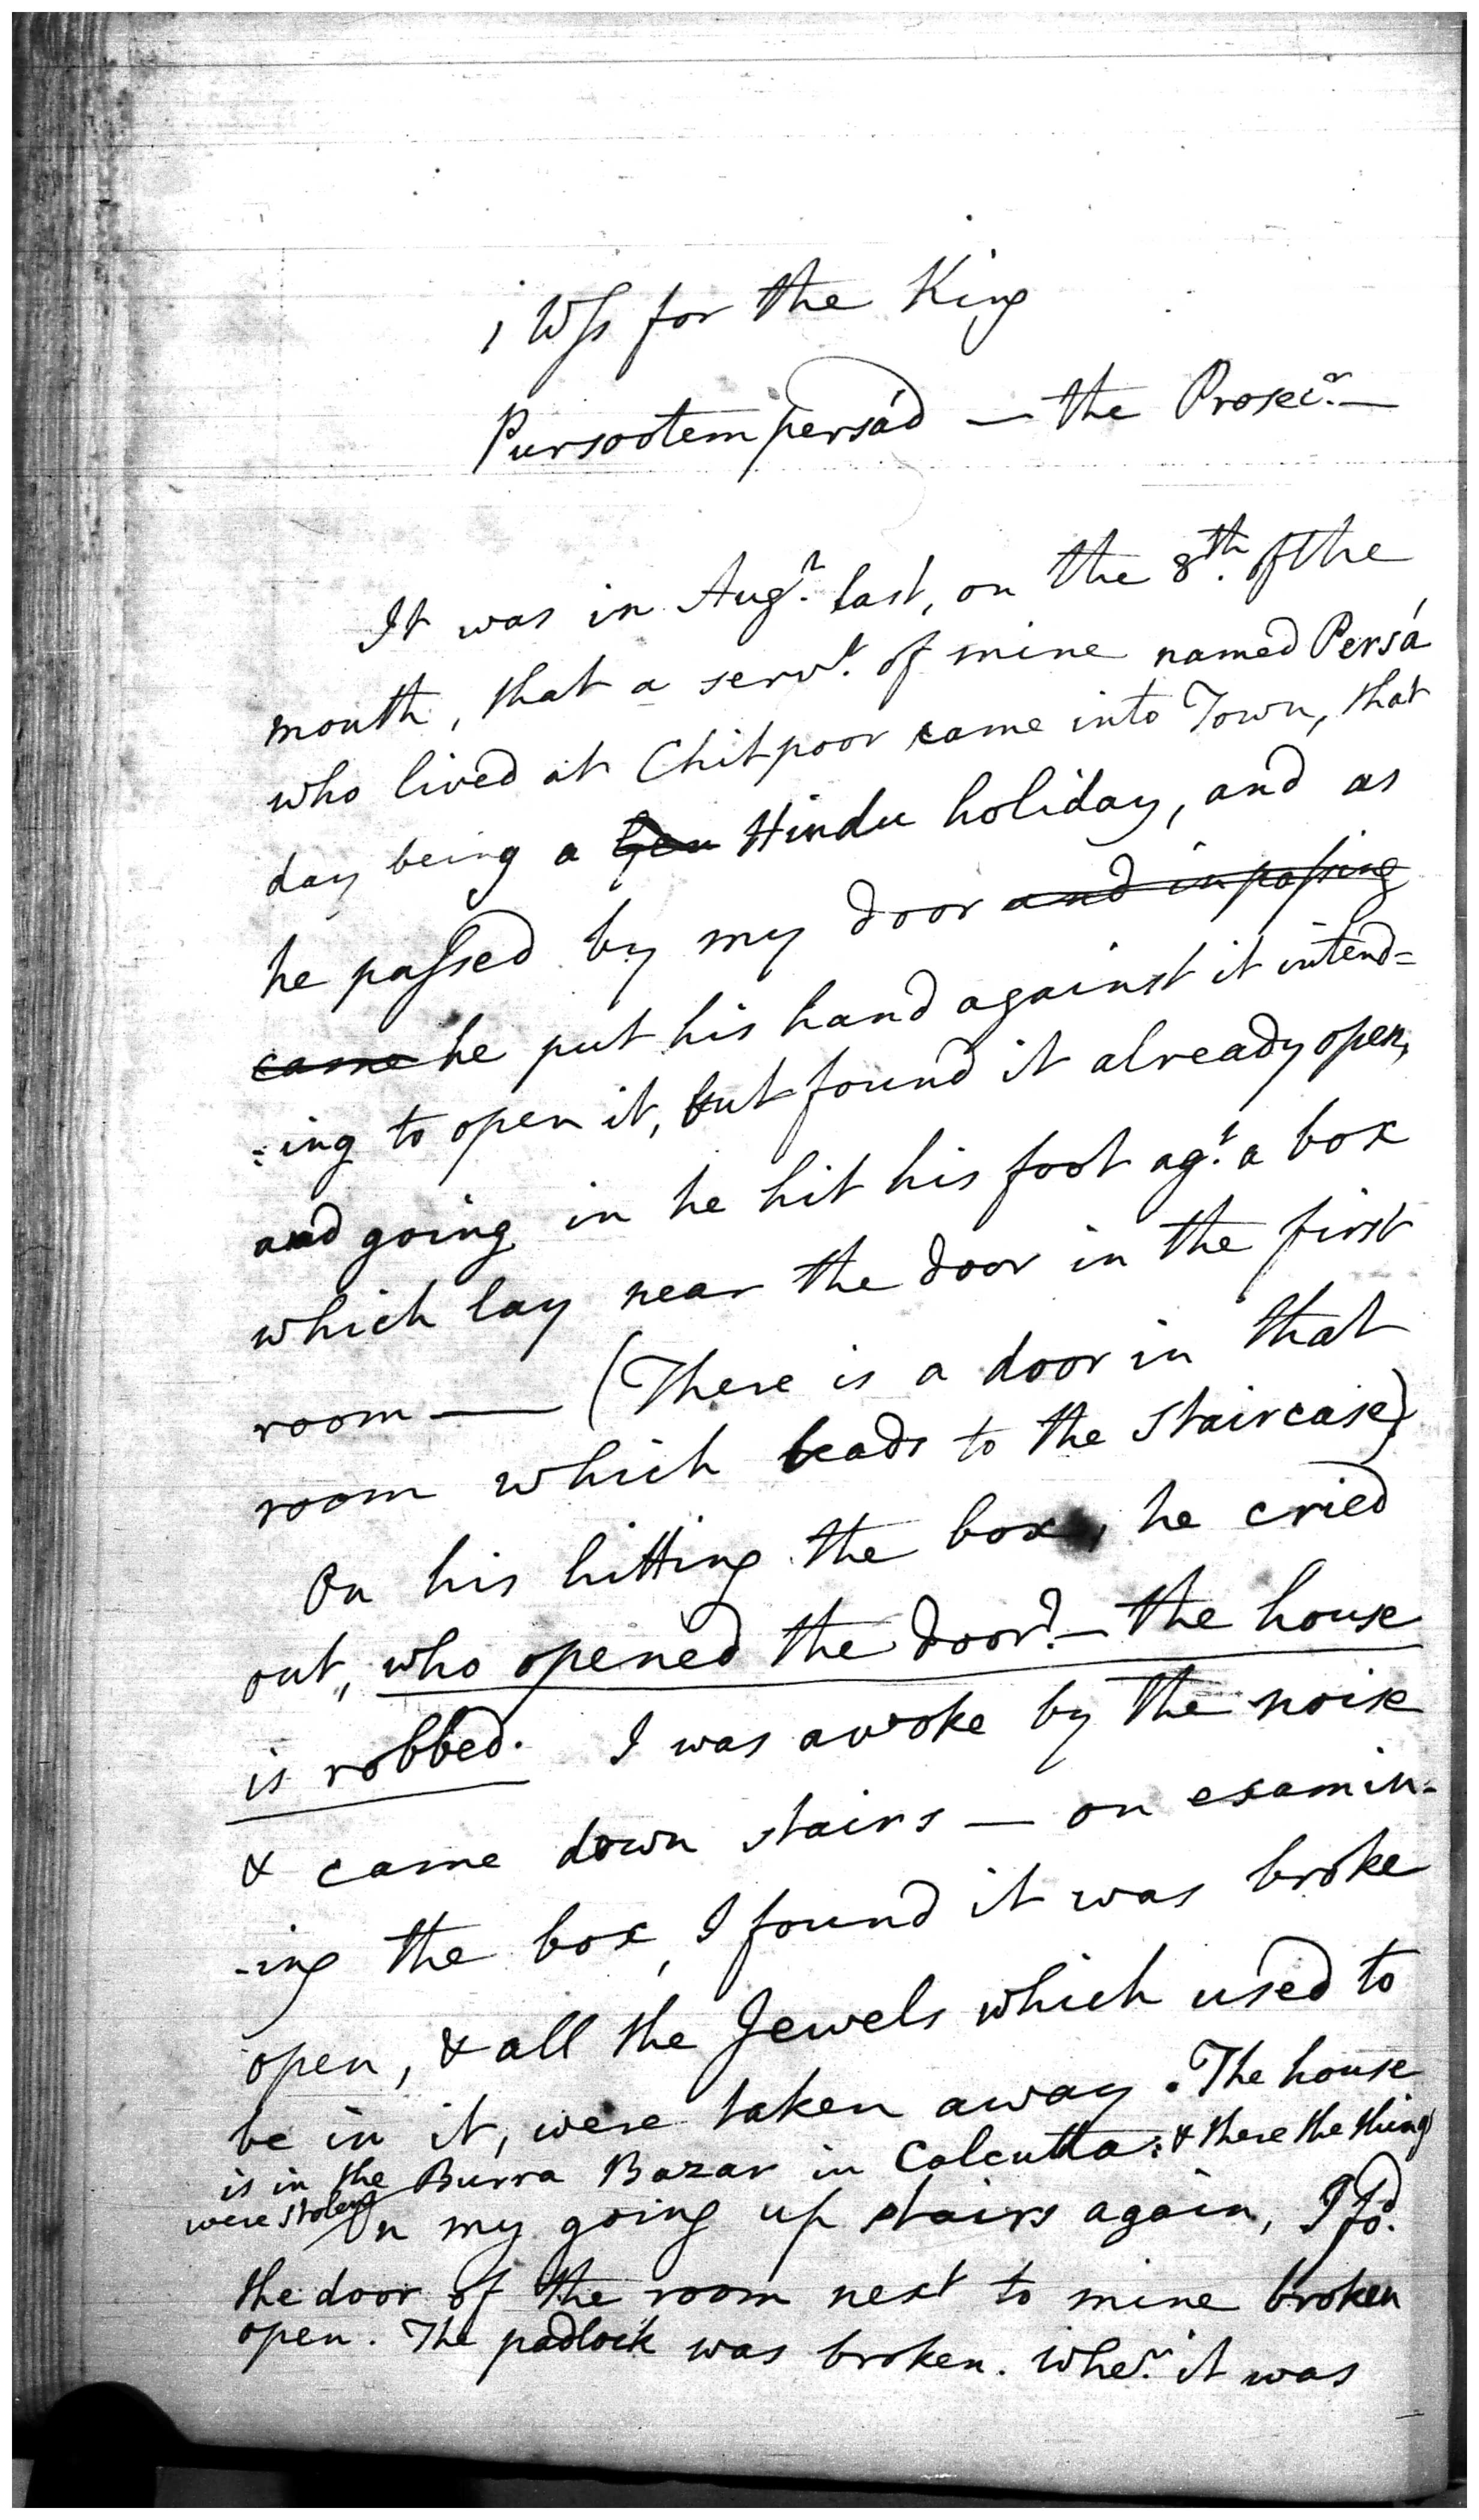 1 Wss for the King
Pursootempersád — the Prosecr. —
It was in Augt. last, on the 8th. of the
month, that a servt. of mine named Persá
who lived at Chitpoor came into Town, that
day being a Hindu holiday, and as
he passed by my door and in passing
came he put his hand against it intend=
=ing to open it, but found it already open,
and going in he hit his foot agt. a box
which lay near the door in the first
room — (There is a door in that
room which leads to the staircase)
On his hitting the box, he cried
out, who opened the door? — the house
is robbed. I was awoke by the noise
& came down stairs — on examin-
-ing the box, I found it was broke
open, & all the Jewels which used to
be in it, were taken away. The house
is in the Burra Bazar in Calcutta: & there the things
were stolen
On my going up stairs again, I fd.
the door of the room next to mine broken
open. The padlock was broken. Wher. it was